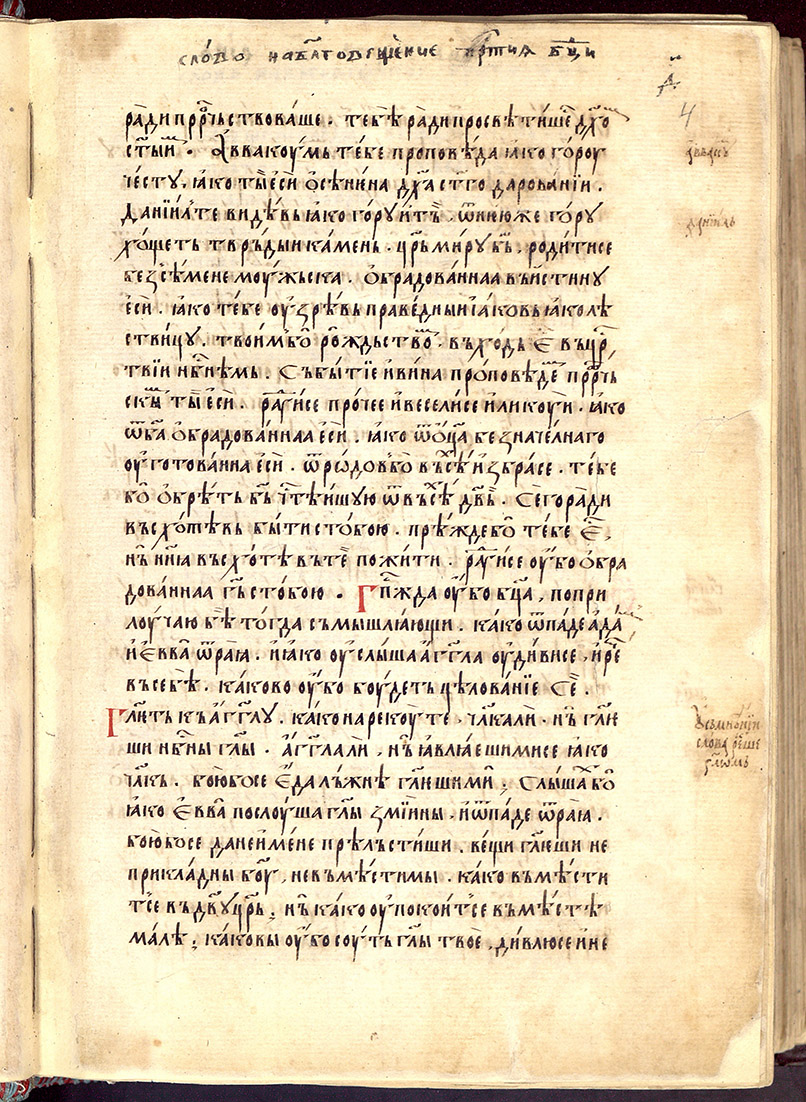 сло́во на бл҃говѣщенїе прⷭ҇тыѧ бцⷣи
д҃
4
ра́ди прⷪ҇рчьствова́ше . тебѣ̀ ра́ди просвѣти́ше дх҃ѡⷨ
ст҃ыиⷨ . А҆ввакоу́мь те́бе проповѣ́да ꙗ҆́ко го́роу
че́сту . ꙗ҆́ко ты̀ е҆сѝ ѻ҆сѣне́нна дх҃а ст҃го дарова́нїи .
Данїи́л те видѣ́вь ꙗ҆́ко го́ру и҆ тꙋ̀ . ѿ нюже го́ру
хо́щеть твръ́ды ка́мень . цр҃ь ми́ру бь҃ . роди́тисе
без сѣ́мене моу́жьска . ѻ҆брадова́ннаа въи́стину
е҆сѝ . ꙗ҆́ко те́бе оу҆зрѣ́вь пра́ведныи і҆а́ковь ꙗ҆́ко лѣ́
ствицу . твои́м бо̀ рождьствоⷨ . въхо́дь є҆ⷭ҇ въ црⷭ҇
твїи нбⷭ҇нѣмь . Събы́тїе и҆ вина̀ проповѣ́де прⷪ҇рчь
скы́ⷨ ты̀ е҆сѝ . ра́ⷣуисе про́чее и҆ весели́се и҆ лику́и . ꙗ҆́ко
ѿ ба҃ ѻ҆брадова́ннаа е҆сѝ . ꙗ҆́ко ѿ ѻ҆ц҃а безнача́лнаго
оу҆гото́ванна е҆сѝ . ѿ ро́дов бо̀ въсѣⷯ и҆збра́се . те́бе
бо̀ ѻ҆брѣ́ть бь҃ чⷭ҇тѣ́ишую ѿ въсѣⷯ дв҃ь . Сего̀ ра́ди
въсхо́тѣвь бы́ти с тобо́ю . прѣ́жде бо̀ те́бе є҆ⷭ҇ ,
нь̀ нн҃ꙗ въсхо́тѣ въ те̏ пожи́ти . ра́ⷣуисе оу҆́бо ѻ҆бра
дова́ннаа гь҃ с тобо́ю . Гⷭ҇пжда оу҆́бо бц҃а , по при
лоу́чаю бѣ̀ тогда̀ съмышлꙗ́ющи . ка́ко ѿпа́де а҆да́ⷨ
и҆ е҆́вва ѿ ра́ꙗ . и҆ ꙗ҆́ко оу҆слы́ша а҆́гг҃ла оу҆ди́висе , и҆ реⷱ҇
въ се́бѣ . ка́ково оу҆́бо боу́деть цѣлова́нїе сѐ .
Гл҃ить къ а҆́гг҃лу . ка́ко нареко́у те , чл҃ка ли . нь̀ гл҃е
ши нбⷭ҇ны гл҃ы . а҆́гг҃ла ли , нь̀ ꙗ҆влꙗ́еши мисе ꙗ҆́ко
чл҃кь . бою́ босе є҆да̀ лъ́жнѣ гл҃еши мѝ . Слы́шаⷯ бо̀
ꙗ҆́ко є҆́вва послоу́ша гл҃ы змїи́ны , и҆ ѿпа́де ѿ ра́ꙗ .
бою́ босе да не и҆ ме́не прѣлъсти́ши . ве́щи гл҃еши не
прикла́дны боу҃ , невъмѣ́стимы . ка́ко въмѣ́сти
тсе въ дв҃у цр҃ь , нь̀ ка́ко оу҆поко́итсе въ мѣ́стѣ
ма́лѣ , ка́ковы оу҆́бо соу́ть гл҃ы твоѐ , дивлю́се и҆ не
аввакꙋⷨ
данїиль